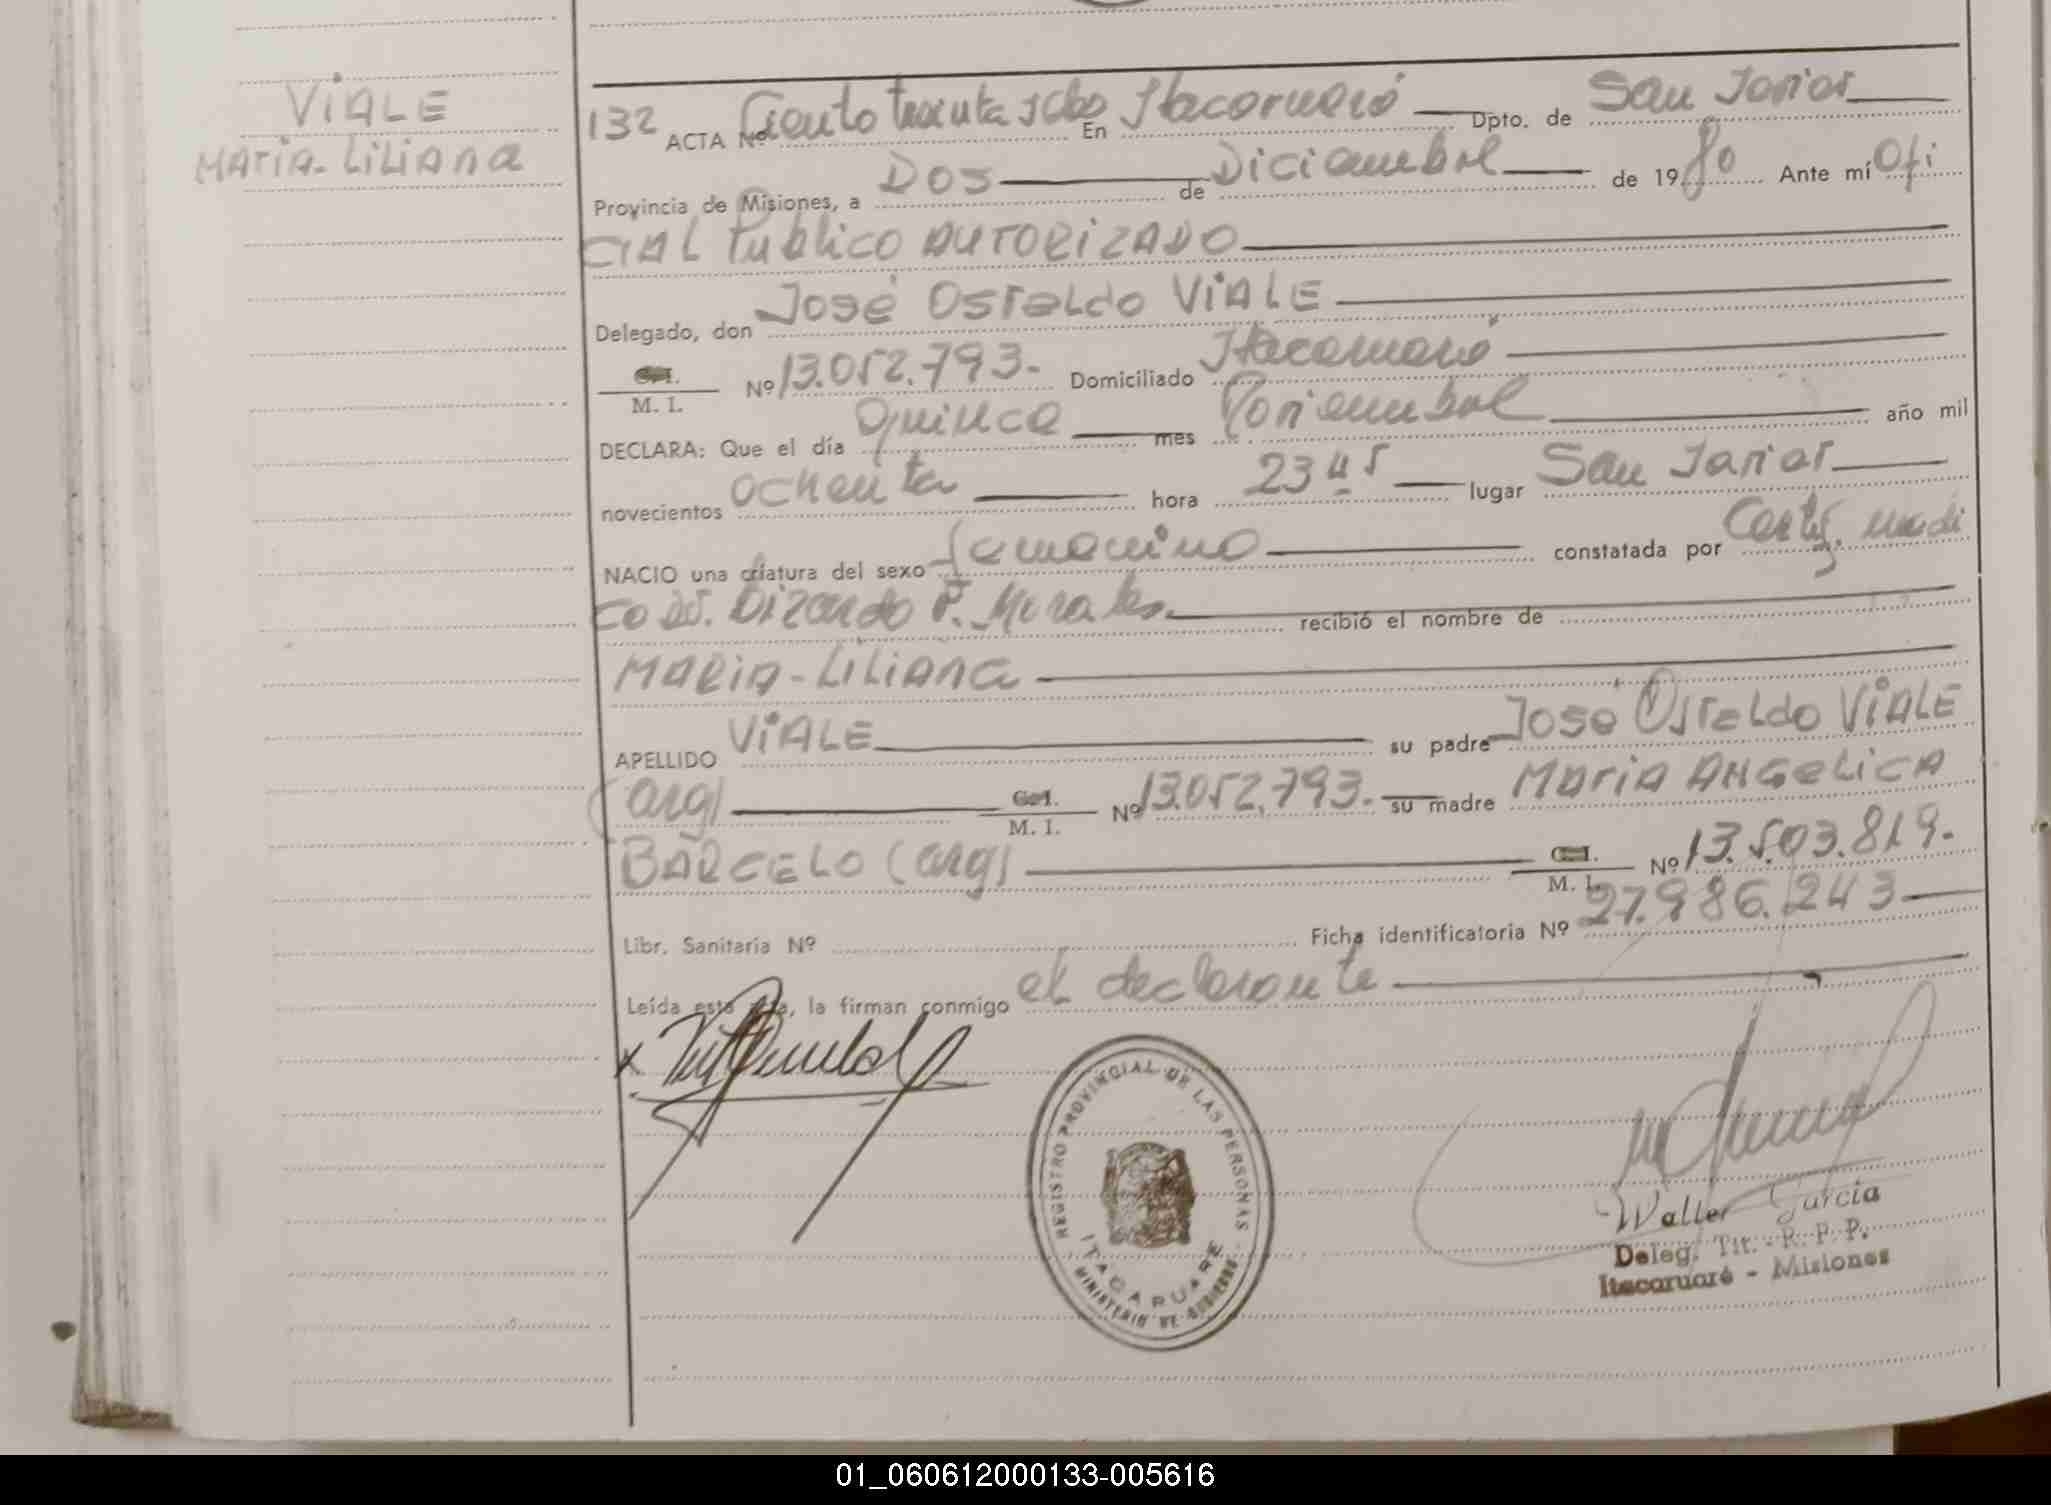 VIALE
MARIA-LILIANA
132 ACTA Nº Ciento treinta y dos En Itacaruaré Dpto. de San Javier
Provincia de Misiones, a Dos de Diciembre de 1980 Ante mí Ofi
CIAL Publico AUTORIZADO
Delegado, don José Osvaldo VIALE
C.I.
M. I. Nº 13.052.793. Domiciliado Itacaruaré
DECLARA: Que el día quince mes Noviembre año mil
novecientos ochenta hora 23 45 lugar San Javier
NACIO una criatura del sexo femenino constatada por Certif. medi
co Dr. F. Morales. recibió el nombre de
MARIA-LILIANA
APELLIDO VIALE su padre José Osvaldo VIALE
(arg) C.I.
M. I. Nº 13.052.793. su madre MARIA ANGELICA
BARCELO (arg) C.I.
M. I. Nº 13.503.819.
Libr. Sanitaria Nº Ficha identificatoria Nº 27.986.243
Leída esta acta, la firman conmigo el declarante
REGISTRO PROVINCIAL DE LAS PERSONAS
ITACARUARE
MINISTERIO DE GOBIERNO
Walter Garcia
Deleg. Tit. - R. P. P.
Itacaruaré - Misiones
01_060612000133-005616